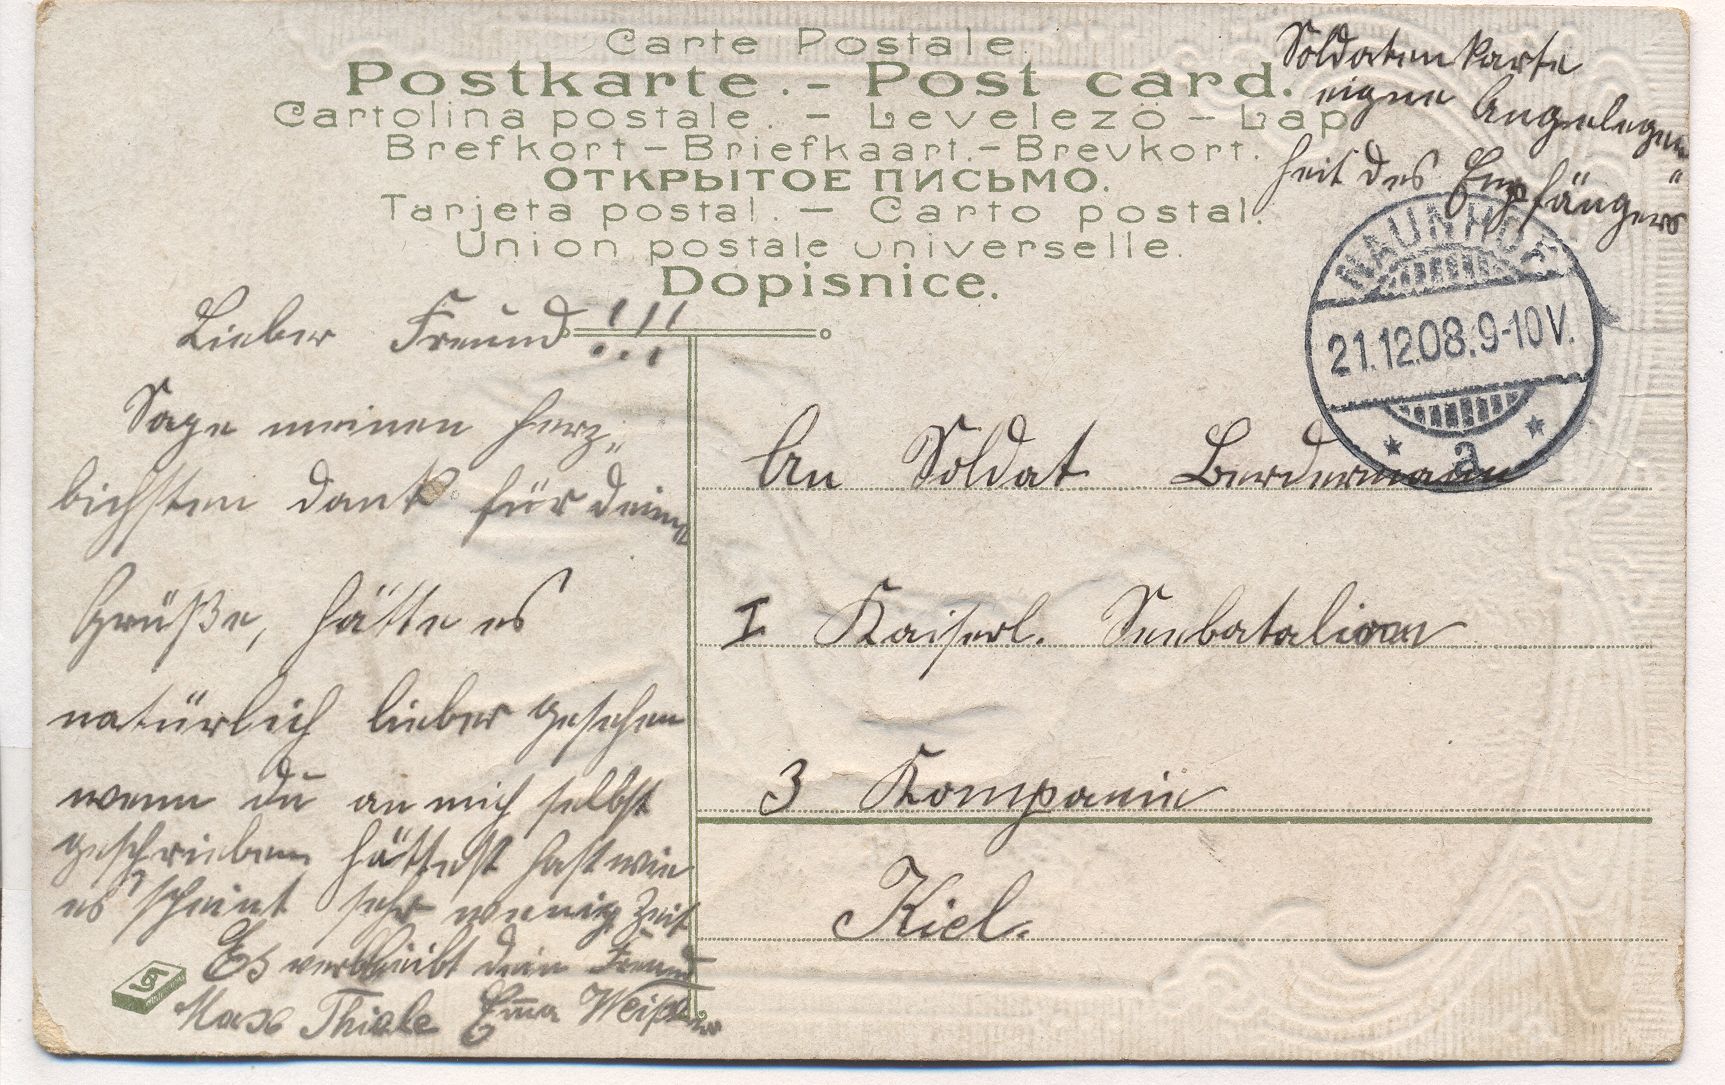 Carte Postale.
Postkarte. - Post card.
Cartolina postale. - Levelezö - Lap
Brefkort - Briefkaart. - Brevkort.
ОТКРЫТОЕ ПИСЬМО.
Tarjeta postal. - Carto postal.
Union postale universelle.
Dopisnice.
Soldatenkarte
eigne Angelegen
heit des Empfängers
NAUNHOF
21.12.08. 9-10V.
* a *
Lieber Freund!!!
Sage meinen herz„
lichsten dank für deine
Grüße, hätte es
natürlich lieber gesehen
wenn du an mich selbst
geschrieben hättest hast wie
es scheint sehr wenig Zeit
Es verbleibt dein Freund
Max Thiele Emma
An Soldat Berdermann
I Kaiserl. Seebatalion
3 Kompanie
Kiel.